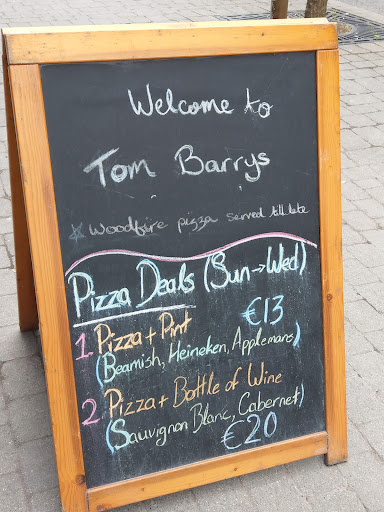 Welcome to
Tom Barrys
* Woodfire pizza served till late
Pizza Deals (Sun→Wed)
1 Pizza + Pint €13
(Beamish, Heineken, Applemans)
2 Pizza + Bottle of Wine
(Sauvignon Blanc, Cabernet)
€20